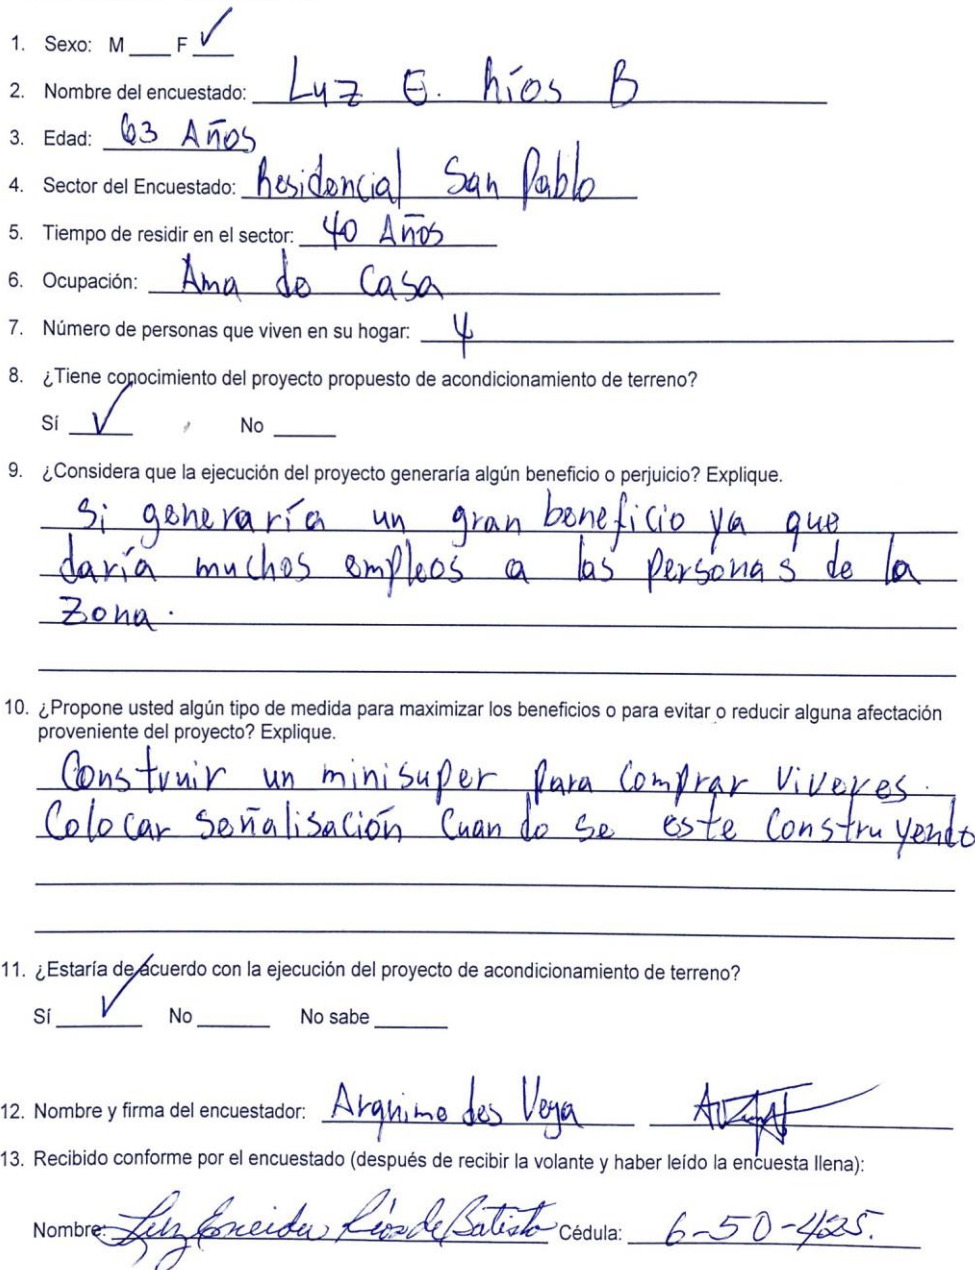 1. Sexo: M ____ F ✓
2. Nombre del encuestado: Luz E. Ríos B
3. Edad: 63 Años
4. Sector del Encuestado: Residencial San Pablo
5. Tiempo de residir en el sector: 40 Años
6. Ocupación: Ama de Casa
7. Número de personas que viven en su hogar: 4
8. ¿Tiene conocimiento del proyecto propuesto de acondicionamiento de terreno?
Sí ✓ No ____
9. ¿Considera que la ejecución del proyecto generaría algún beneficio o perjuicio? Explique.
Si generaría un gran beneficio ya que
daría muchos empleos a las personas de la
zona.
10. ¿Propone usted algún tipo de medida para maximizar los beneficios o para evitar o reducir alguna afectación
proveniente del proyecto? Explique.
Construir un minisuper para comprar viveres.
Colocar señalisación cuando se este construyendo
11. ¿Estaría de acuerdo con la ejecución del proyecto de acondicionamiento de terreno?
Sí ✓ No ____ No sabe ____
12. Nombre y firma del encuestador: Arquimedes Vega
13. Recibido conforme por el encuestado (después de recibir la volante y haber leído la encuesta llena):
Nombre: Luz Eneida Ríos de Batista Cédula: 6-50-425.